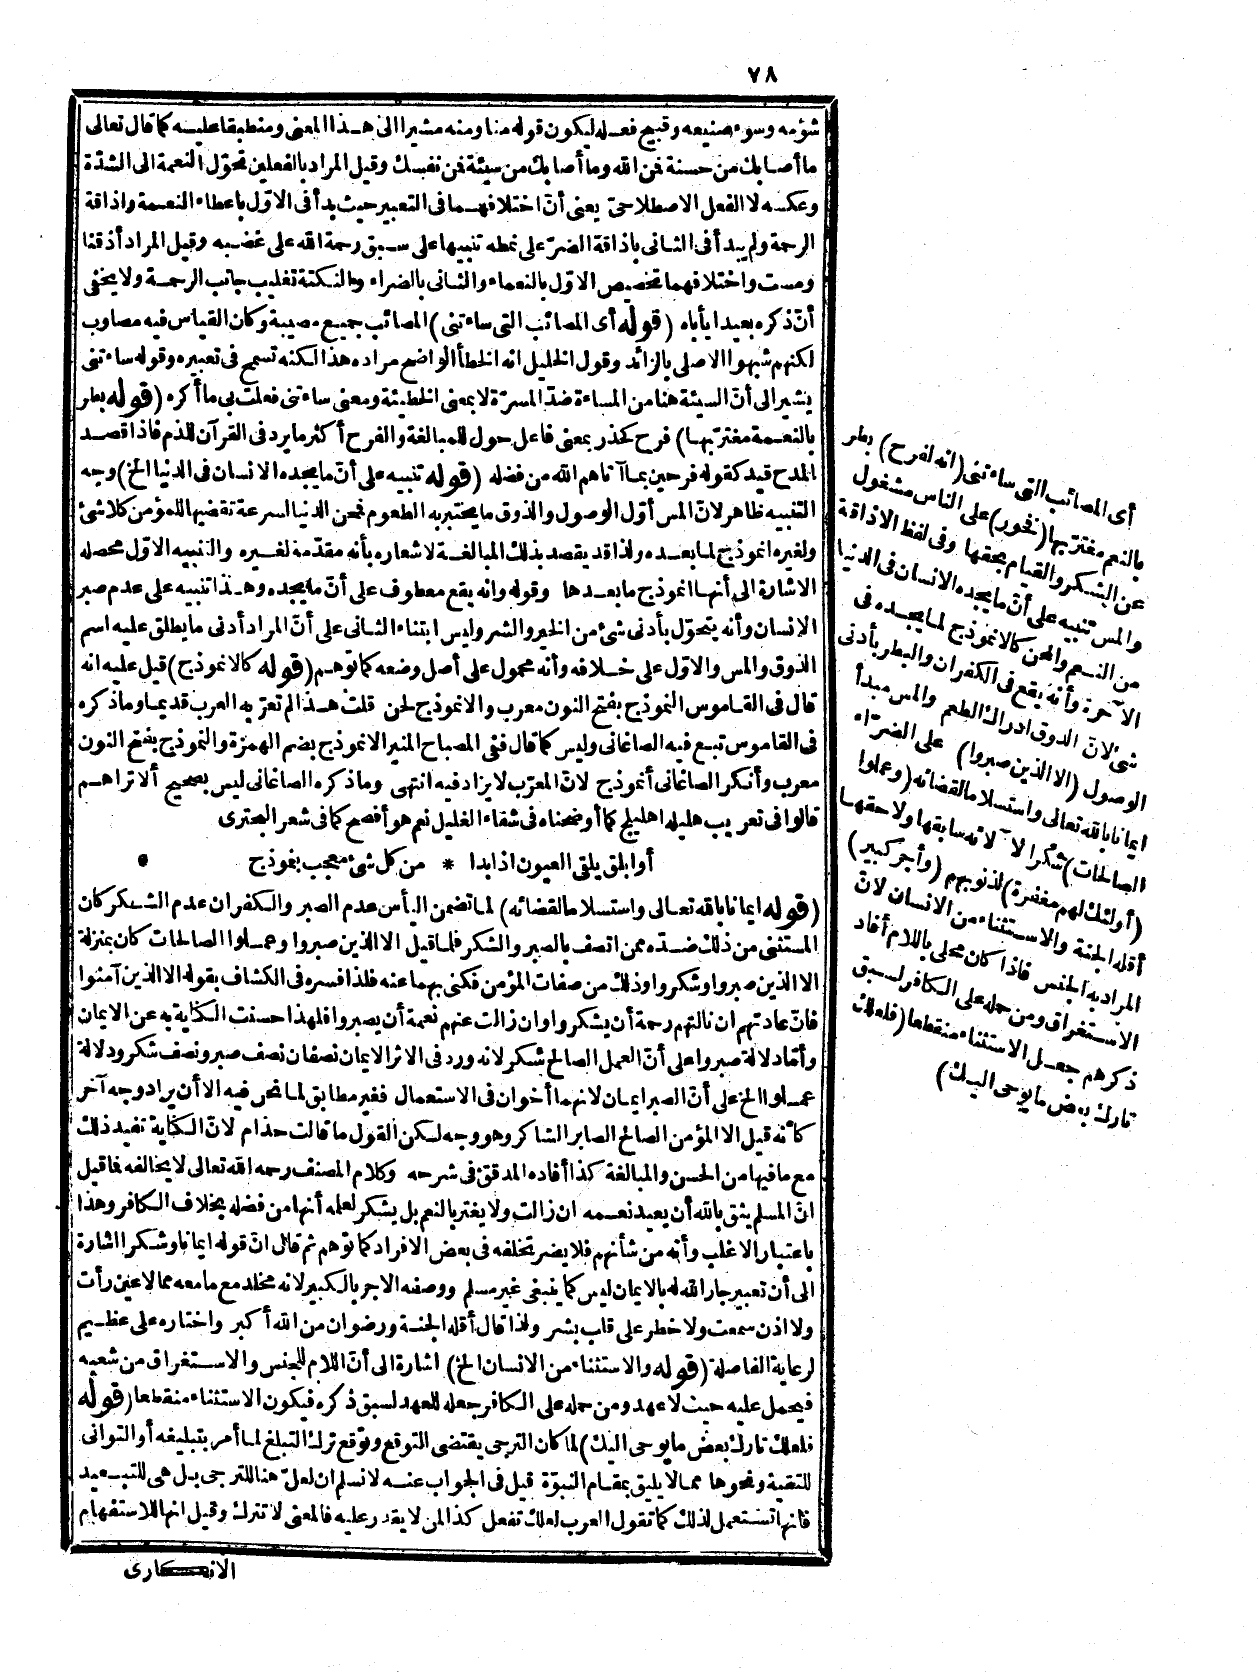 ٧٨
شؤمه وسوء صنيعه وقبيح فعله ليكون قوله منا ومنه مشيرا الى هذا المعنى ومنطبقا عليه كما قال تعالى
ما أصابك من حسنة فمن الله وما أصابك من سيئة فمن نفسك وقيل المراد بالفعلين تحوّل النعمة الى الشدّة
وعكسه لا الفعل الاصطلاحيّ يعنى أنّ اختلافهما فى التعبير حيث بدأ فى الاوّل باعطاء النعمة واذاقة
الرحمة ولم يبدأ فى الثانى باذاقة الضرّ على نمطه تنبيها على سبق رحمة الله على غضبه وقيل المراد أذقنا
ومست واختلافهما تخصيص الاوّل بالنعماء والثانى بالضراء والنكتة تغليب جانب الرحمة ولا يخفى
أنّ ذكره بعيد ايأباه (قوله أى المصائب التى ساءتنى) المصائب جميع مصيبة وكان القياس فيه مصاوب
لكنهم شبهوا الاصلى بالزائد وقول الخليل انه الخطأ الواضح مراده هذا لكنه تسمح فى تعبيره وقوله ساءتنى
يشير الى أنّ السيئة هنا من المساءة ضدّ المسرّة لا بمعنى الخطيئة ومعنى ساءتنى فعلت بى ما أكره (قوله بطر
بالنعمة مغترّ بها) فرح كحذر بمعنى فاعل حول للمبالغة والفرح أكثر ما يرد فى القرآن للذم فاذا قصد
المدح قيد كقوله فرحين بما آتاهم الله من فضله (قوله تنبيه على أنّ ما يجده الانسان فى الدنيا الخ) وجه
التنبيه ظاهر لانّ المس أوّل الوصول والذوق ما يختبر به الطعوم فمحن الدنيا لسرعة تقضيها للمؤمن كلا شئ
ولغيره انموذج لما بعده ولذا قد يقصد بذلك المبالغة لاشعاره بأنه مقدّمة لغيره والتنبيه الاوّل محصله
الاشارة الى أنها انموذج ما بعدها وقوله وانه يقع معطوف على أنّ ما يجده وهذا تنبيه على عدم صبر
الانسان وأنه يتحوّل بأدنى شئ من الخير والشر وليس ابتناء الثانى على أنّ المراد أدنى ما يطلق عليه اسم
الذوق والمس والاوّل على خلافه وأنه محمول على أصل وضعه كما توهم (قوله كالانموذج) قيل عليه انه
قال فى القاموس النموذج بفتح النون معرب والانموذج لحن قلت هذا لم تعرّ به العرب قديما وما ذكره
فى القاموس تبع فيه الصاغانى وليس كما قال ففى المصباح المنير الانموذج بضم الهمزة والنموذج بفتح النون
معرب وأنكر الصاغانى أنموذج لانّ المعرّب لا يزاد فيه انتهى وما ذكره الصاغانى ليس بصحيح ألا تراهم
قالوا فى تعريب هليله اهليلج كما أوضحناه فى شفاء الغليل نعم هو أفصح كما فى شعر البحترى
أو ابلق يلقى العيون اذا بدا * من كل شئ معجب بنموذج
(قوله ايمانا بالله تعالى واستسلاما لقضائه) لما تضمن اليأس عدم الصبر والكفران عدم الشكر كان
المستثنى من ذلك ضدّه ممن اتصف بالصبر والشكر فلما قيل الا الذين صبروا وعملوا الصالحات كان بمنزلة
الا الذين صبروا وشكروا وذلك من صفات المؤمن فكنى بهما عنه فلذا فسره فى الكشاف بقوله الا الذين آمنوا
فانّ عادتهم ان نالتهم رحمة أن يشكروا وان زالت عنهم نعمة أن يصبروا فلهذا حسنت الكناية به عن الايمان
وأفاد لالة صبروا على أنّ العمل الصالح شكر لانه ورد فى الاثر الايمان نصفان نصف صبر ونصف شكر ودلالة
عملوا الخ على أنّ الصبر ايمان لانهما أخوان فى الاستعمال فغير مطابق لما نحن فيه الا أن يراد وجه آخر
كأنه قيل الا المؤمن الصالح الصابر الشاكر وهو وجه لكن القول ما قالت حذام لانّ الكناية تفيد ذلك
مع ما فيها من الحسن والمبالغة كذا أفاده المدقق فى شرحه وكلام المصنف رحمه الله تعالى لا يخالفه فما قيل
انّ المسلم يثق بالله أن يعيد نعمه ان زالت ولا يغتر بالنعم بل يشكر لعلمه أنها من فضله بخلاف الكافر وهذا
باعتبار الاغلب وأنه من شأنهم فلا يضر تخلفه فى بعض الافراد كما توهم ثم قال انّ قوله ايمانا وشكرا اشارة
الى أن تعبير جار الله له بالايمان ليس كما ينبغى غير مسلم ووصفه الاجر بالكبير لانه مخلد مع ما معه مما لا عين رأت
ولا اذن سمعت ولا خطر على قلب بشر ولذا قال أقله الجنة ورضوان من الله أكبر واختاره على عظيم
لرعاية الفاصلة (قوله والاستثناء من الانسان الخ) اشارة الى أنّ اللام للجنس والاستغراق من شعبه
فيحمل عليه حيث لا عهد ومن حمله على الكافر جعله للعهد لسبق ذكره فيكون الاستثناء منقطعا (قوله
فلعلك تارك بعض ما يوحى اليك) لما كان الترجى يقتضى التوقع وتوقع ترك التبلغ لما أمر بتبليغه أو التوانى
للتقية ونحوها مما لا يليق بمقام النبوّة قيل فى الجواب عنه لا نسلم ان لعلّ هنا للترجى بل هى للتبعيد
فانها تستعمل لذلك كما تقول العرب لعلك تفعل كذا لمن لا يقدر عليه فالمعنى لا تترك وقيل انها للاستفهام
الانكارى
أى المصائب التى ساءتنى (انه لفرح) بطر
بالنعم مغترّ بها (فخور) على الناس مشغول
عن الشكر والقيام بحقها وفى لفظ الاذاقة
والمس تنبيه على أنّ ما يجده الانسان فى الدنيا
من النعم والمحن كالانموذج لما يجده فى
الآخرة وأنه يقع فى الكفران والبطر بأدنى
شئ لانّ الذوق ادراك الطعم والمس مبدأ
الوصول (الا الذين صبروا) على الضرّاء
ايمانا بالله تعالى واستسلاما لقضائه (وعملوا
الصالحات) شكرا لآلائه سابقها ولاحقها
(أولئك لهم مغفرة) لذنوبهم (وأجر كبير)
أقله الجنة والاستثناء من الانسان لانّ
المراد به الجنس فاذا كان محلى باللام أفاد
الاستغراق ومن حمله على الكافر لسبق
ذكرهم جعل الاستثناء منقطعا (فلعلك
تارك بعض ما يوحى اليك)